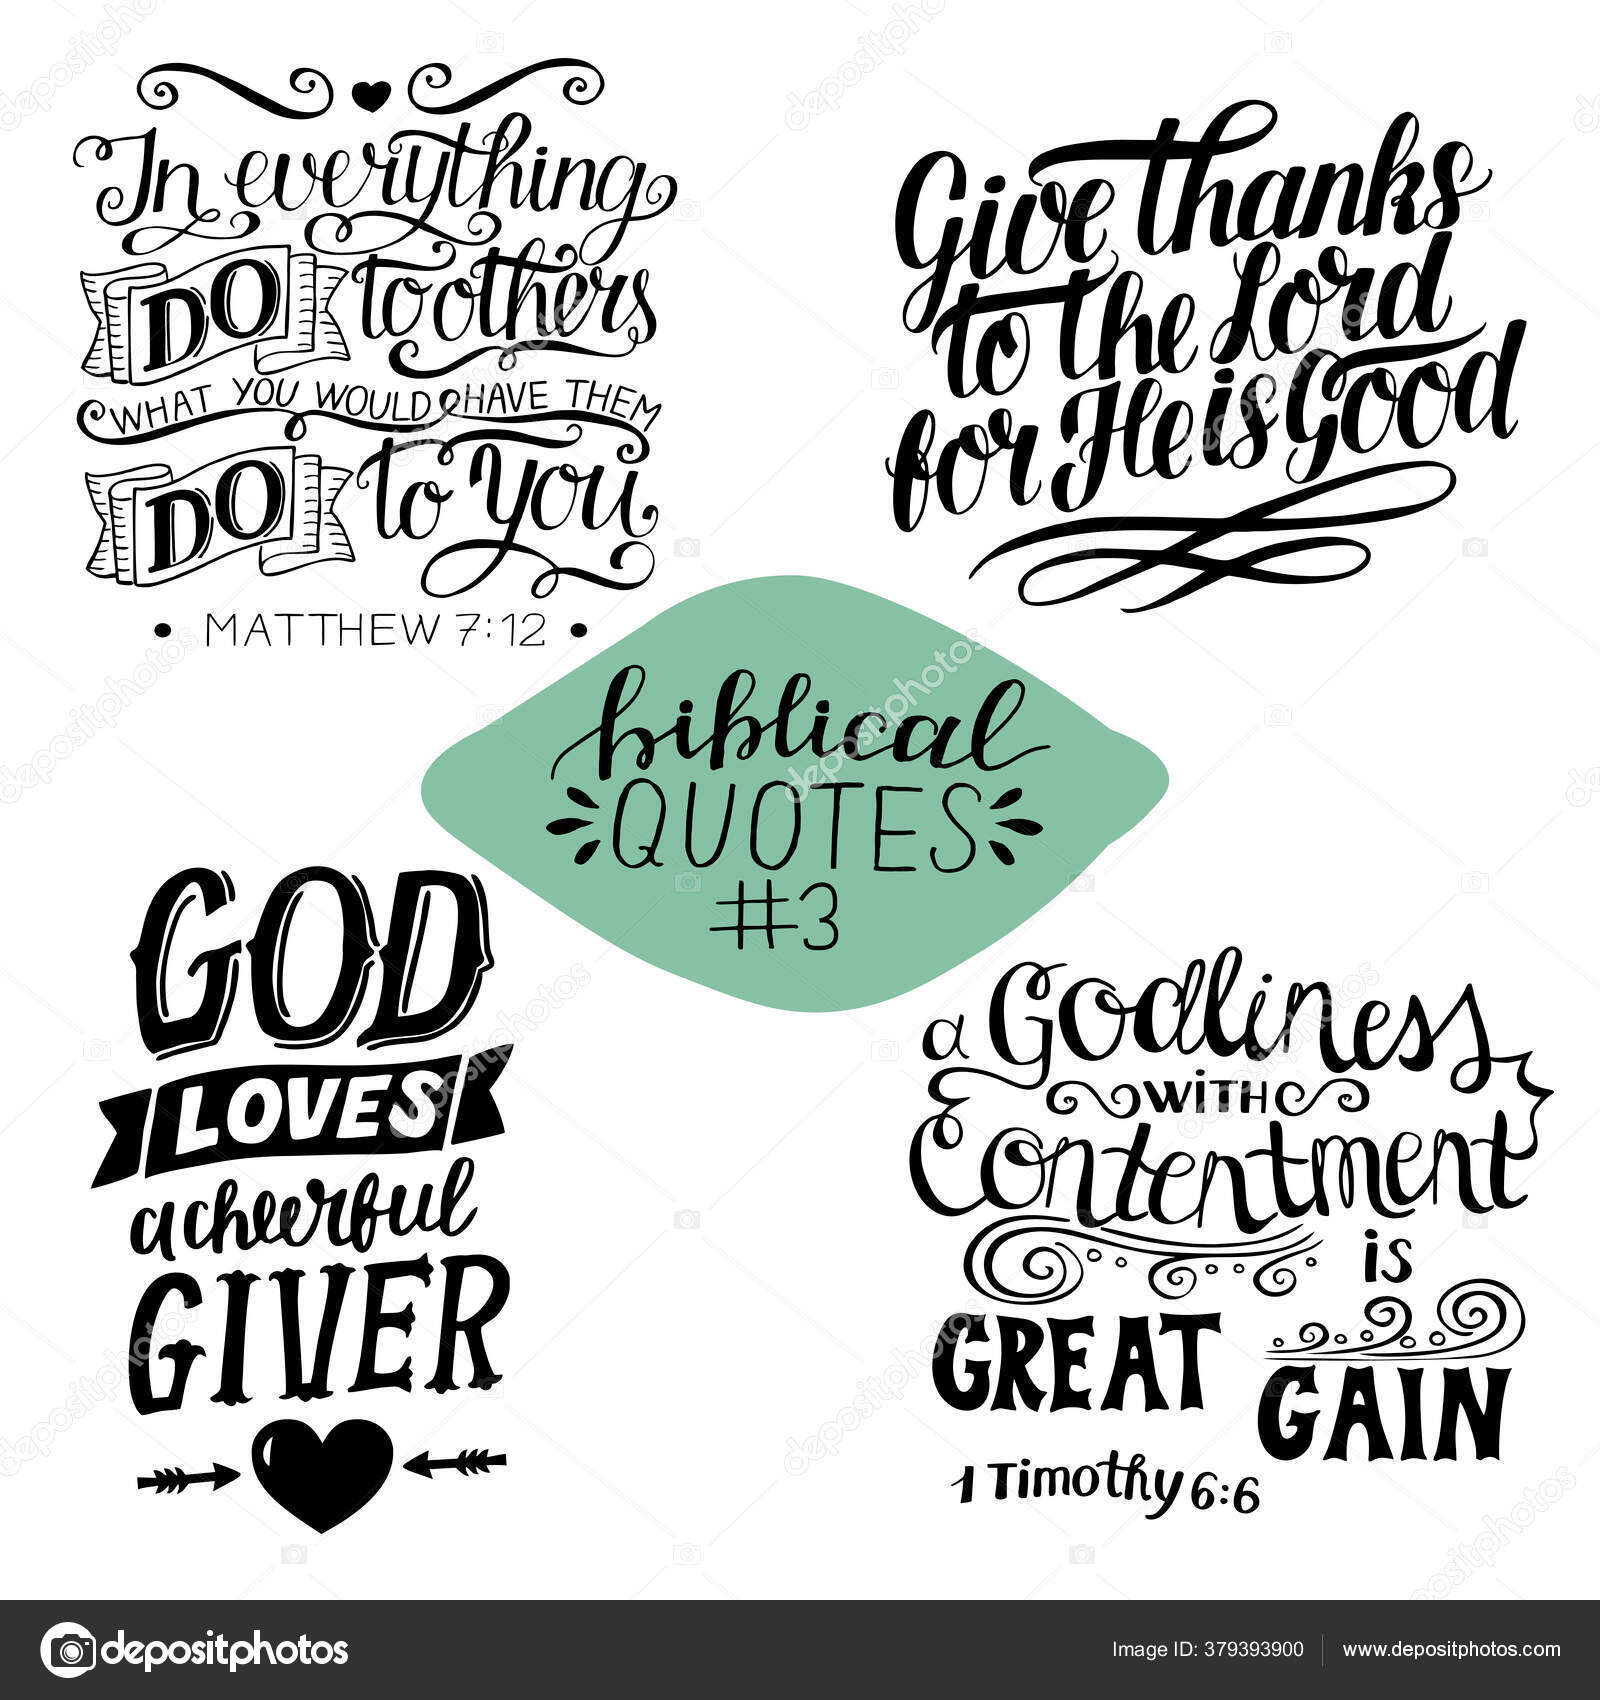 In everything
DO to others
WHAT YOU WOULD HAVE THEM
DO to You
• MATTHEW 7:12 •
Give thanks
to the Lord
for He is Good
biblical
QUOTES
#3
GOD
LOVES
a cheerful
GIVER
a Godliness
WITH
Contentment
is
GREAT
GAIN
1 Timothy 6:6
depositphotos
Image ID: 379393900
www.depositphotos.com